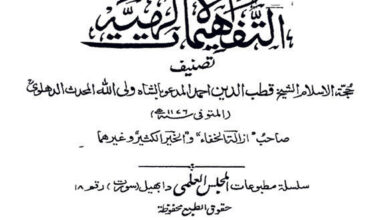 التفهيمات الإلهية
تصنيف
حجة الاسلام الشيخ قطب الدين احمد المدعو بشاه ولى الله المحدث الدهلوى
(المتوفى سنة ١١٧٦ھ)
صاحب "ازالة الخفاء" و"الخير الكثير" وغيرهما
سلسلة مطبوعات المجلس العلمى دابهيل (سورت) رقم ١٨
حقوق الطبع محفوظة